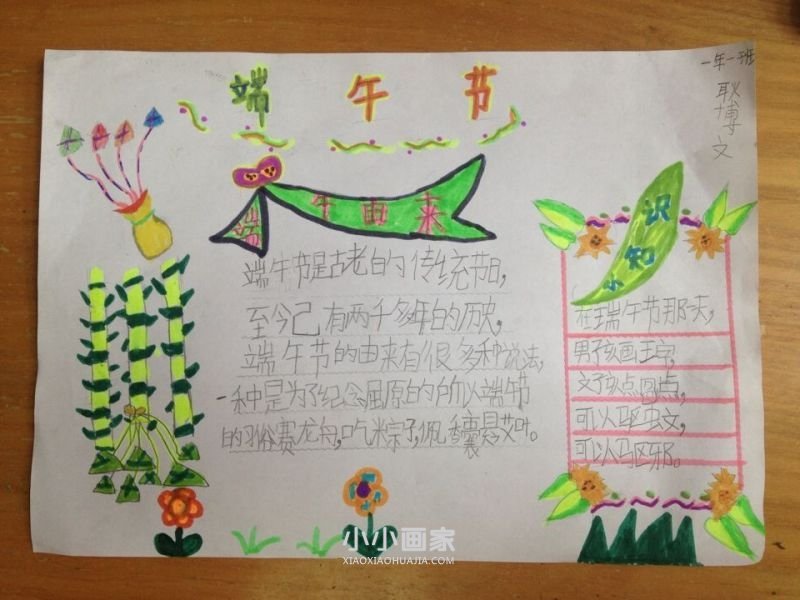 端午节
一年一班
耿博文
端午由来
端午节是古老的传统节日,
至今已有两千多年的历史,
端午节的由来有很多种说法,
一种是为了纪念屈原的的以端午节
的俗赛龙舟,吃米粽子,佩香囊,悬艾叶。
小知识
在瑞午节那天,
男子孩画王字,
文子孩点圆点,
可以驱虫文,
可以马区邪。
小小画家
XIAOXIAOHUAJIA.COM